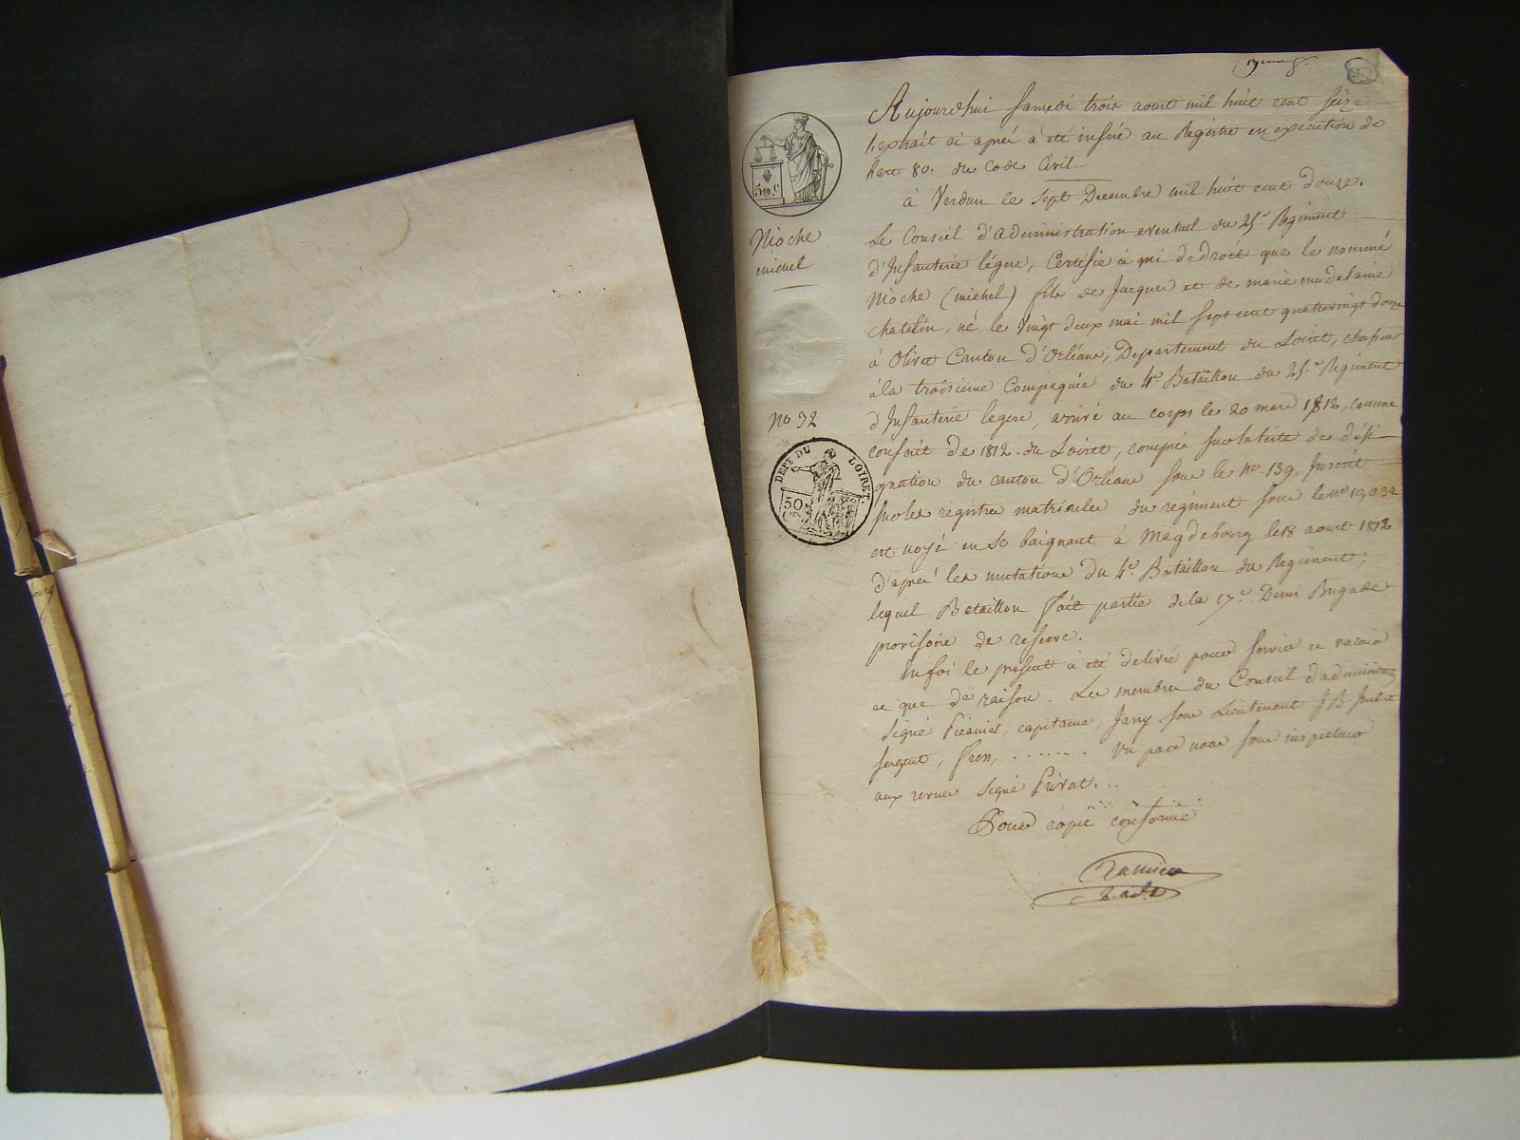 Aujourdhui Samedi trois aout mil huit cent seize
l'extrait ci aprés à été inséré au Registre en execution de
l'art 80. du Code Civil
à Verdun le Sept Decembre mil huit cent douze.
Nioche
michel
Le Conseil d'administration eventuel du 25e Regiment
d'Infanterie légere, Certifie à qui de droit que le nommé
Nioche (michel) fils de Jacques et de marie madelaine
chatelin, né le Vingt deux mai mil sept cent quatrevingt douze
à Olivet Canton d'Orléans, Departement du Loiret, chasseur
à la troisieme Compagnie du 4e Bataillon du 25e Regiment
No 32
d'Infanterie légere, arrivé au corps le 20 mars 1812, comme
conscrit de 1812 du Loiret, compris sur la liste de dési
gnation du canton d'Orléans sous le No 139, Inscrit
sur les registres matricules du regiment sous le no
DEPT DU LOIRET
50
est noyé en se baignant à Magdebourg le 18 aout 1812
d'aprés les mutations du 4e Bataillon du Regiment,
lequel Bataillon fait partie de la 17e Demi Brigade
provisoire de reserve.
En foi le present à été delivré pour servir et valoir
ce que de raison. Les membres du Conseil d'administration
Signé capitaine, Sous Lieutenant
sergent, ....... Vu par nous sous inspecteur
aux revues Signé Privat...
Pour copie conforme